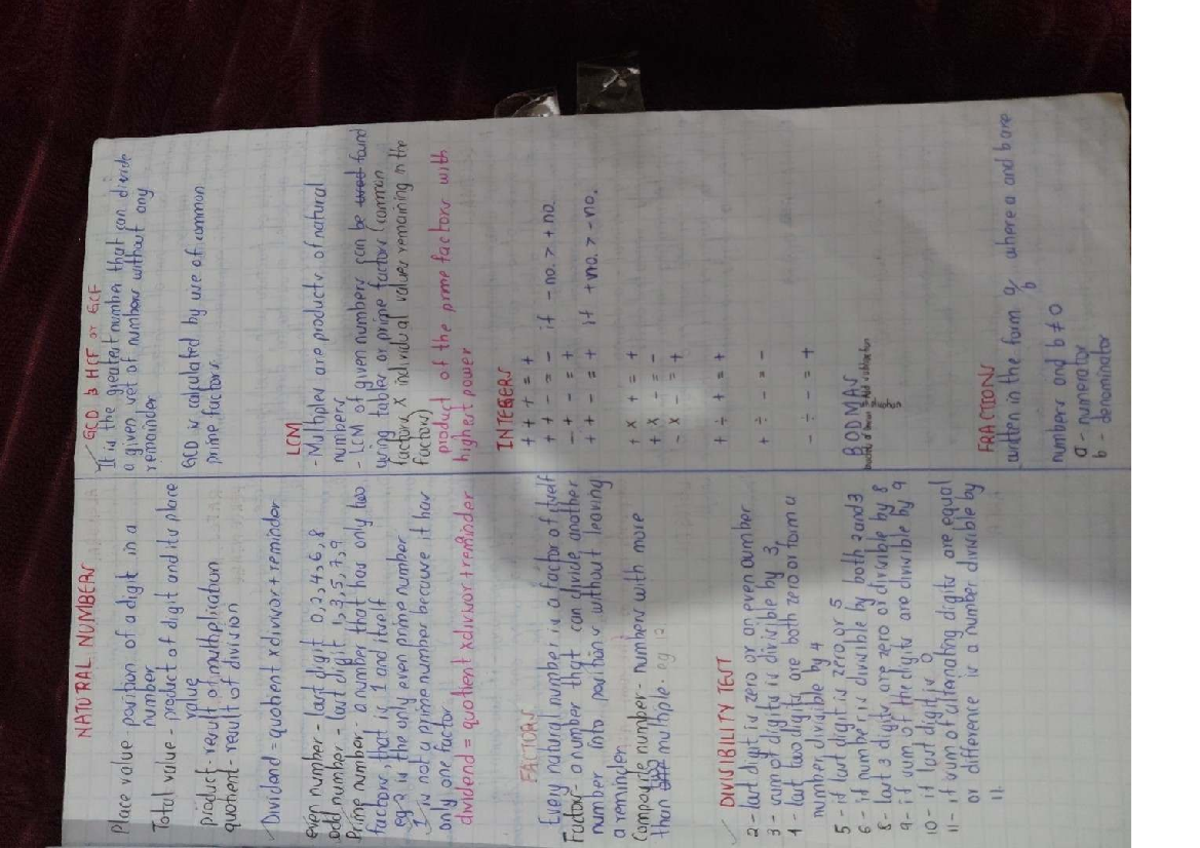 NATURAL NUMBERS
Place value - position of a digit in a
number
Total value - product of digit and its place
value
product - result of multiplication
quotient - result of division
Dividend = quotient x divisor + reminder
even number - last digit 0,2,4,6,8
odd number - last digit 1,3,5,7,9
Prime number - a number that has only two
factors, that is 1 and itself
eg 2 is the only even prime number
1 is not a prime number because it has
only one factor
dividend = quotient x divisor + reminder
FACTORS
Every natural number is a factor of itself
Factor - a number that can divide another
number into portions without leaving
a reminder
Composite number - numbers with more
than one multiple. eg 12
DIVISIBILITY TEST
2 - last digit is zero or an even number
3 - sum of digits is divisible by 3,
4 - last two digits are both zero or form a
number divisible by 4
5 - if last digit is zero or 5
6 - if number is divisible by both 2 and 3
8 - last 3 digits are zero or divisible by 8
9 - if sum of the digits are divisible by 9
10 - if last digit is 0
11 - if sum of alternating digits are equal
or difference is a number divisible by
11.
GCD & HCF or GCF
It is the greatest number that can divide
a given set of numbers without any
remainder
GCD is calculated by use of common
prime factors
LCM
- Multiples are products of natural
numbers
- LCM of given numbers can be used found
using tables or prime factors (common
factors x individual values remaining in the
factors)
product of the prime factors with
highest power
INTEGERS
+ + + = +
+ + - = - if - no. > + no.
- + - = +
+ + - = + if + no. > - no.
+ x + = +
+ x - = -
- x - = +
+ ÷ + = +
+ ÷ - = -
- ÷ - = +
BODMAS
FRACTIONS
written in the form a/b where a and b are
numbers and b ≠ 0
a - numerator
b - denominator